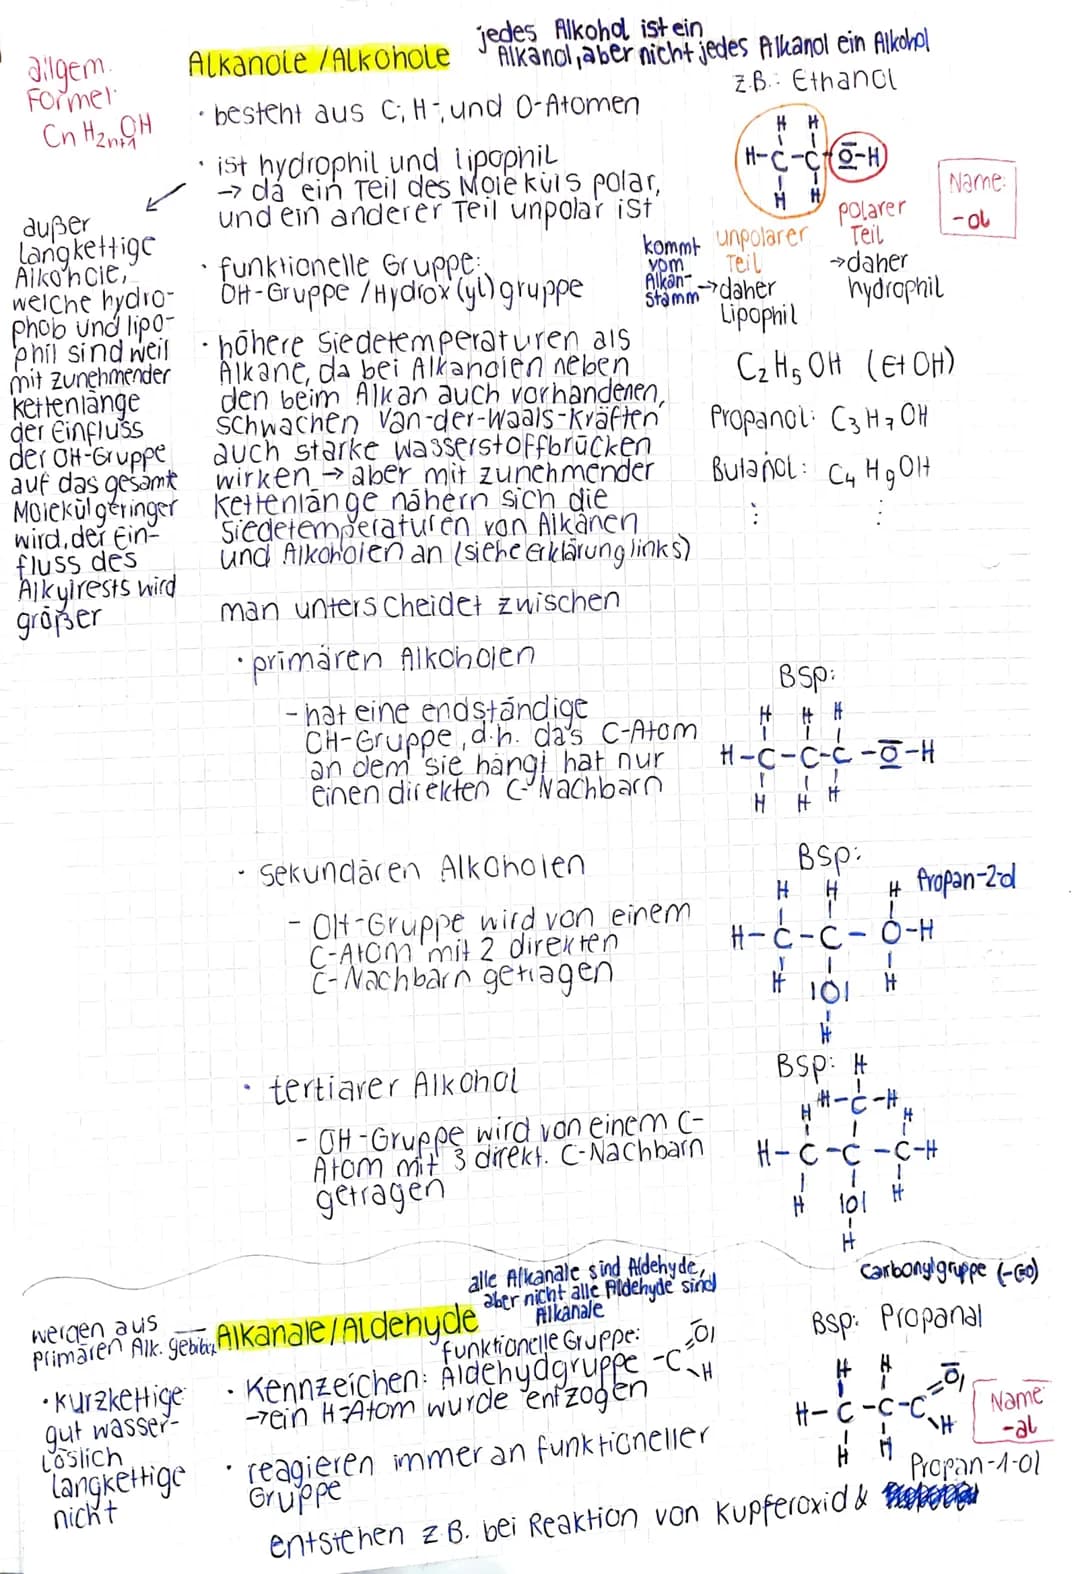 allgem.
Formel:
CnH2n+1OH
Alkanole / Alkohole
jedes Alkohol ist ein
Alkanol, aber nicht jedes Alkanol ein Alkohol
z.B.: Ethanol
· besteht aus C-, H-, und O-Atomen
· ist hydrophil und lipophil
→ da ein Teil des Moleküls polar,
und ein anderer Teil unpolar ist
H H
H-C-C-O-H
H H
Name:
-ol
unpolarer
Teil
→daher
Lipophil
kommt
vom
Alkan-
stamm
polarer
Teil
→daher
hydrophil
außer
langkettige
Alkohole,
welche hydro-
phob und lipo-
phil sind weil
mit zunehmender
Kettenlänge
der Einfluss
der OH-Gruppe
auf das gesamt
Molekül geringer
wird, der Ein-
fluss des
Alkylrests wird
größer
· funktionelle Gruppe:
OH-Gruppe / Hydrox(yl)gruppe
· höhere Siedetemperaturen als
Alkane, da bei Alkanolen neben
den beim Alkan auch vorhandenen,
schwachen Van-der-Waals-Kräften
auch starke Wasserstoffbrücken
wirken → aber mit zunehmender
Kettenlänge nähern sich die
Siedetemperaturen von Alkanen
und Alkoholen an (siehe Erklärung links)
C2H5OH (EtOH)
Propanol: C3H7OH
Butanol: C4H9OH
⋮ ⋮
man unterscheidet zwischen
· primären Alkoholen
- hat eine endständige
OH-Gruppe, d.h. das C-Atom
an dem sie hängt hat nur
einen direkten C-Nachbarn
Bsp:
H H H
H-C-C-C-O-H
H H H
· sekundären Alkoholen
- OH-Gruppe wird von einem
C-Atom mit 2 direkten
C-Nachbarn getragen
Bsp:
H H H Propan-2-ol
H-C-C-O-H
H |O| H
H
· tertiärer Alkohol
- OH-Gruppe wird von einem C-
Atom mit 3 direkt. C-Nachbarn
getragen
Bsp: H
H-C-H
H H
H-C-C-C-H
H |O| H
H
werden aus
primären Alk. gebildet
Alkanale/Aldehyde
alle Alkanale sind Aldehyde,
aber nicht alle Aldehyde sind
Alkanale
Carbonylgruppe (-C=O)
· kurzkettige
gut wasser-
löslich
langkettige
nicht
funktionelle Gruppe:
· Kennzeichen: Aldehydgruppe -C=O|
H
→ein H-Atom wurde entzogen
· reagieren immer an funktioneller
Gruppe
Bsp: Propanal
H H O|
H-C-C-C
H H H
Name
-al
Propan-1-ol
entstehen z.B. bei Reaktion von Kupferoxid &